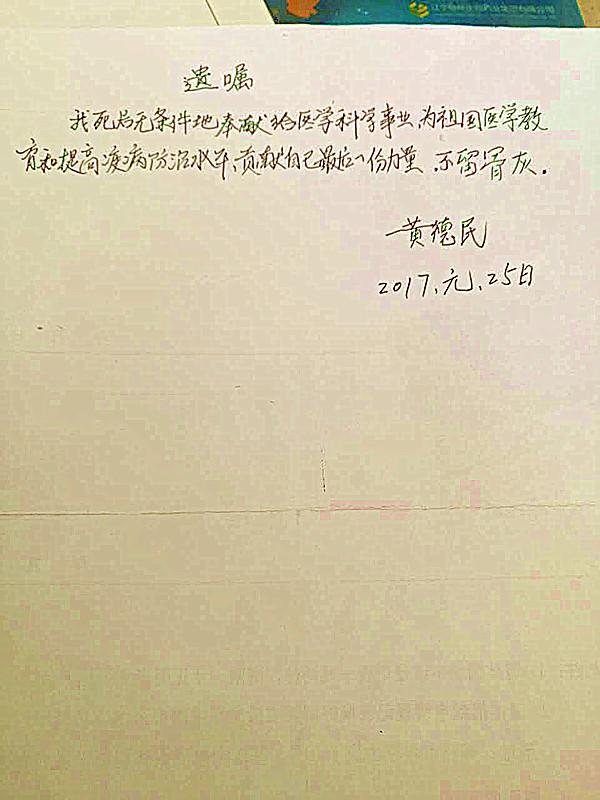 遗嘱
我死后无条件地奉献给医学科学事业,为祖国医学教
育和提高疾病防治水平,贡献自己最后一份力量.不留骨灰.
黄德民
2017、元、25日